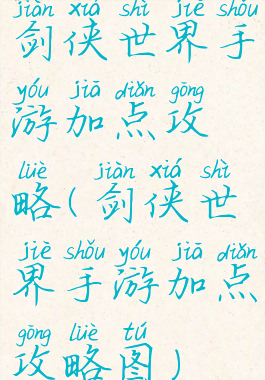 jiàn xiá shì jiè shǒu
剑侠世界手
yóu jiā diǎn gōng
游加点攻
lüè jiàn xiá shì
略(剑侠世
jiè shǒu yóu jiā diǎn
界手游加点
gōng lüè tú
攻略图)